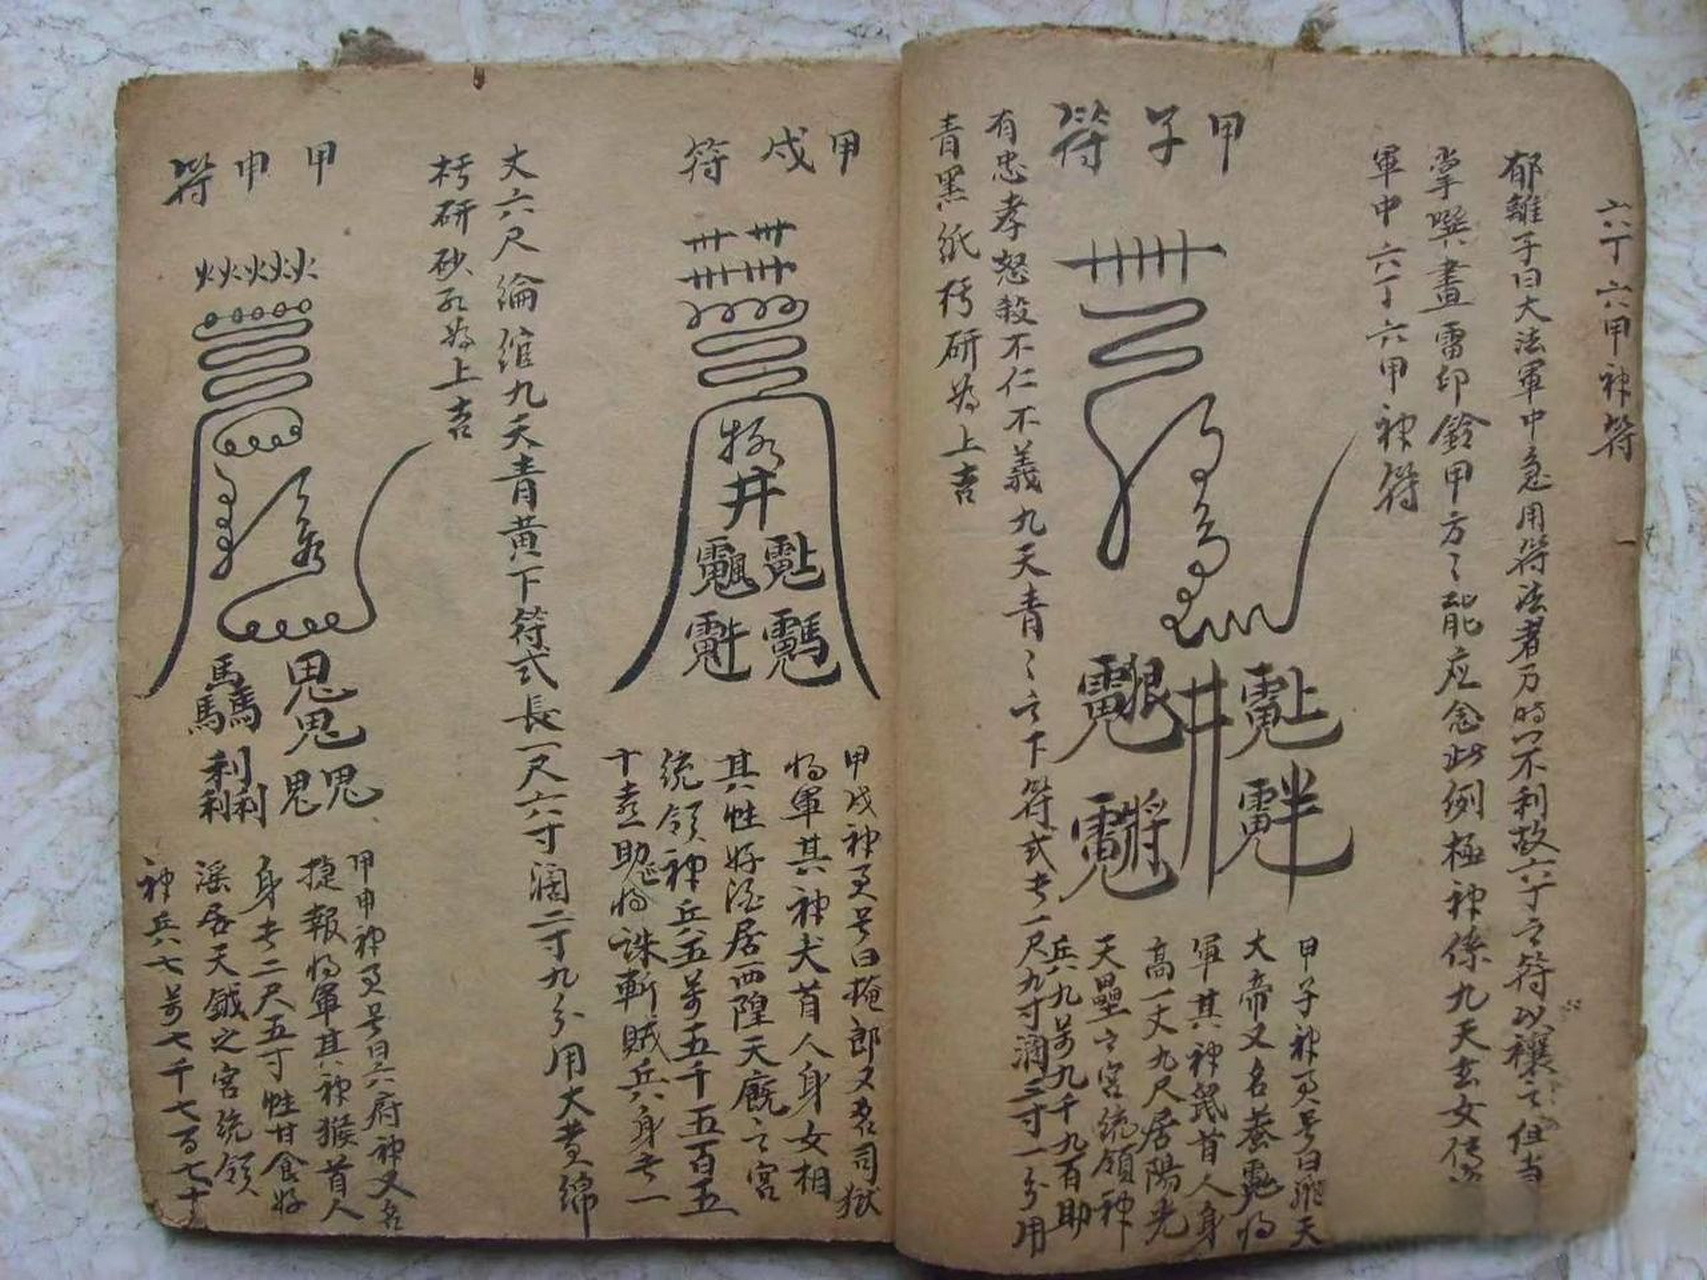 六丁六甲神符
郁離子曰大法軍中急用符法者万時不利故六丁之符以禳之但当
掌噀畫雷印鈴甲方々能应念此例極神係九天玄女傳
軍中六丁六甲神符
甲子符
甲子神君号曰飛天
大帝又名養 將
軍其神鼠首人身
高一丈九尺居陽光
天壘之宮統領神
兵九萬九千九百助
有忠孝怒殺不仁不義九天青々之下符式长一尺九寸濶三寸一分用
青黑紙 研為上吉
甲戍符
極
井
甲戍神君号曰掩郎又名司獄
將軍其神犬首人身女相
其性好酒居西隍天廐之宮
統領神兵五萬五千五百五
十 助 將誅斬賊兵身长一
丈六尺綸綰九天青黃下符式長一尺六寸濶二寸九分用大黄綿
研砂 為上吉
甲申符
火火火火火
甲申神君号曰六府神又名
捷報將軍其神猴首人
身长二尺五寸性甘食好
滛居天鉞之宮統領
神兵七萬七千七百七十